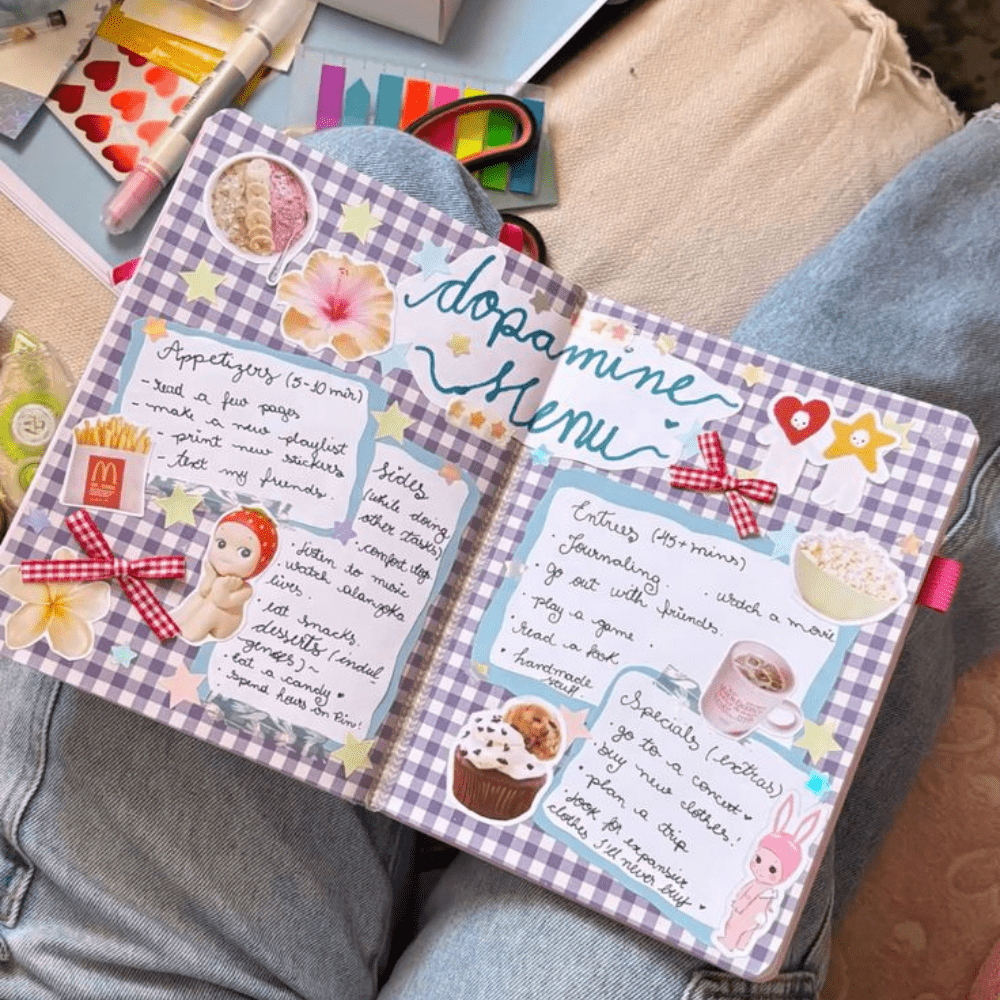 dopamine
menu
Appetizers (5-10 min)
- read a few pages
- make a new playlist
- print new stickers
- text my friends.
Sides
(while doing
other tasks)
• comfort
• listen to music
• watch
lives.
• eat snacks.
desserts (indul-
gences)~
• eat a candy ♥
spend hours on Pin!
Entrees (45+ mins)
• Journaling
• go out with friends.
• play a game
• read a book
• handmade
stuff.
• watch a movie
Specials (-extras)
• go to a concert ♥
• buy new clothes!
• plan a trip
• look for expansive
clothes I'll never buy ♥